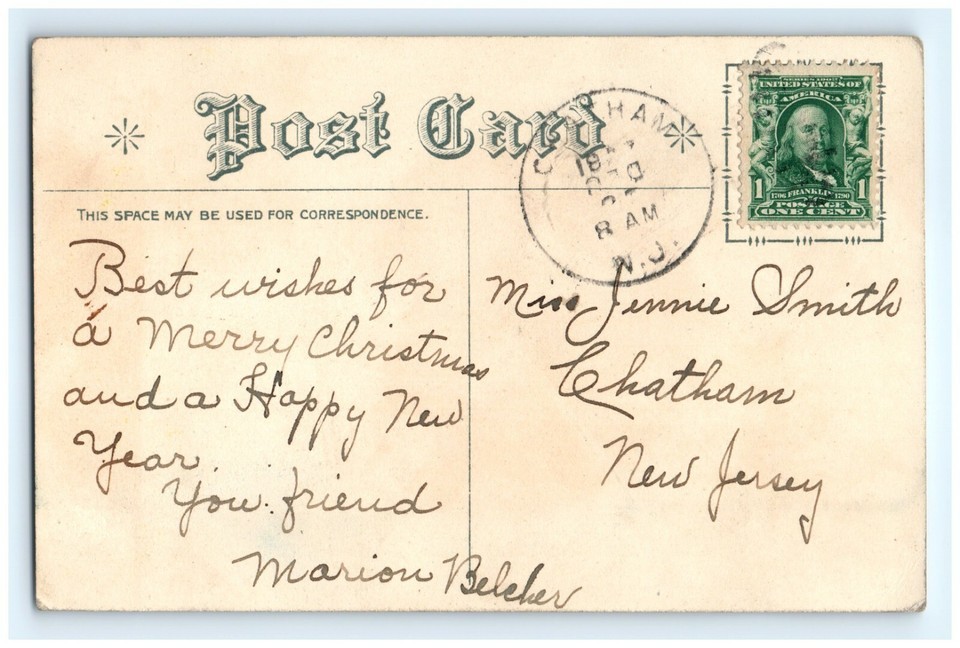 Post Card
THIS SPACE MAY BE USED FOR CORRESPONDENCE.
SERIES 1902
UNITED STATES OF
AMERICA
1 1706 FRANKLIN 1790 1
POSTAGE
ONE CENT
8 AM
N.J.
Best wishes for
a Merry Christmas
and a Happy New
Year.
You friend
Marion Belcher
Miss Jennie Smith
Chatham
New Jersey